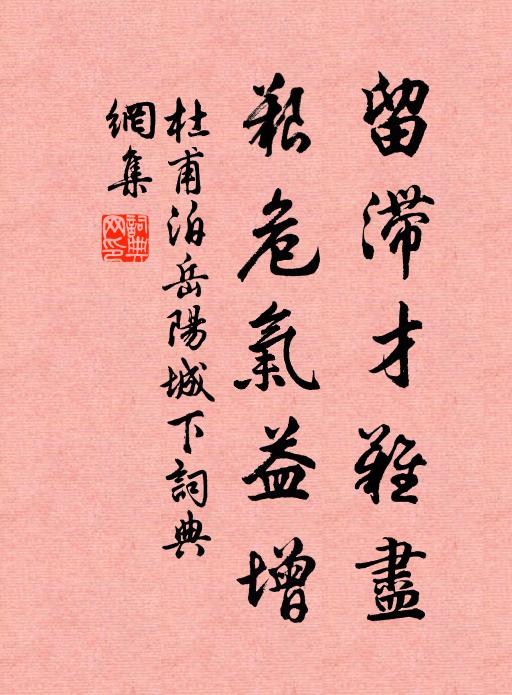 留滯才難盡
艱危氣益增
杜甫泊岳陽城下詞典
網集
詞典
网印